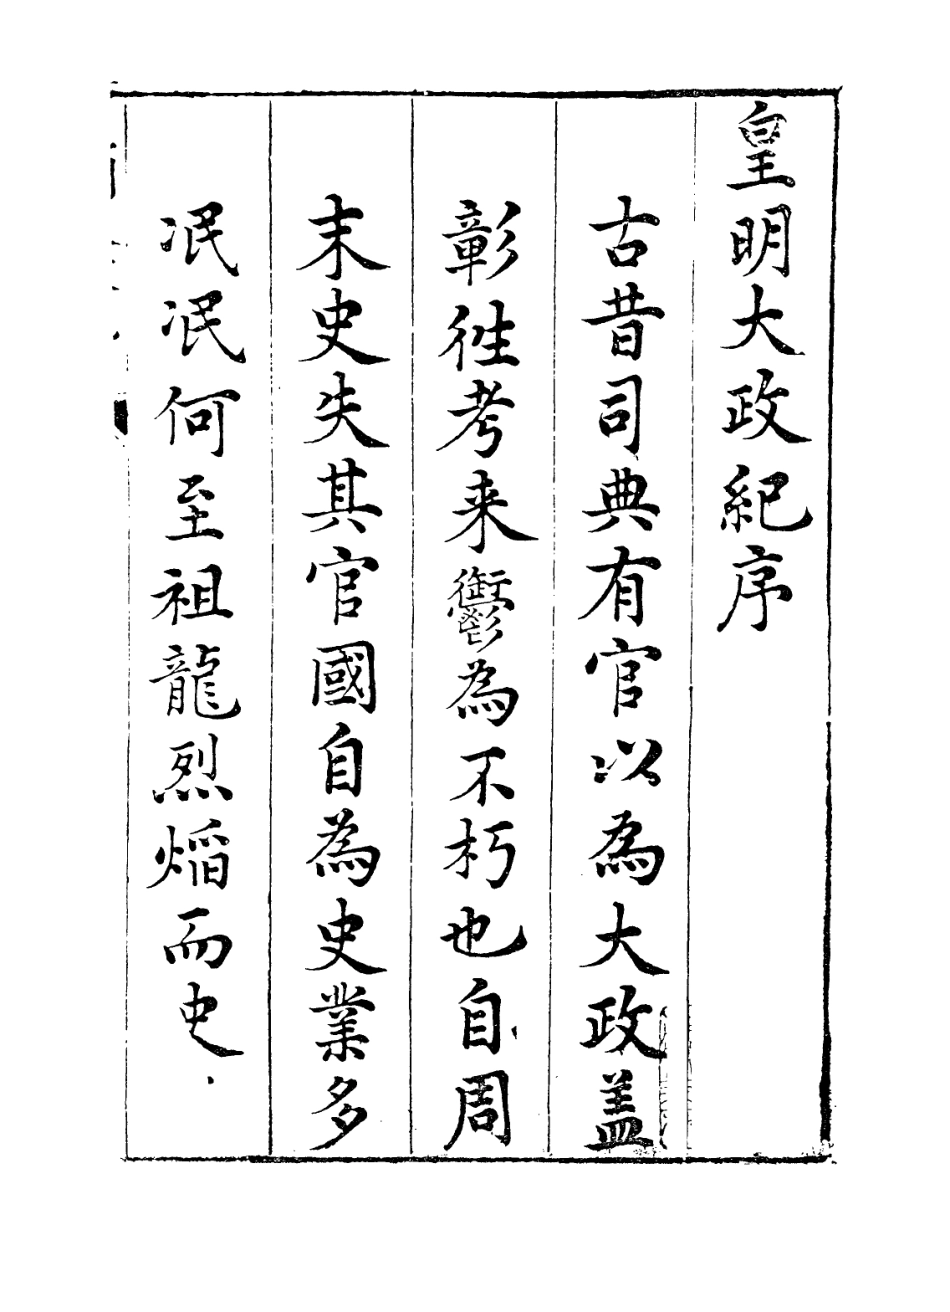 皇明大政紀序
古昔司典有官以為大政盖
彰徃考来鬱為不朽也自周
末史失其官國自為史業多
冺冺何至祖龍烈熖而史